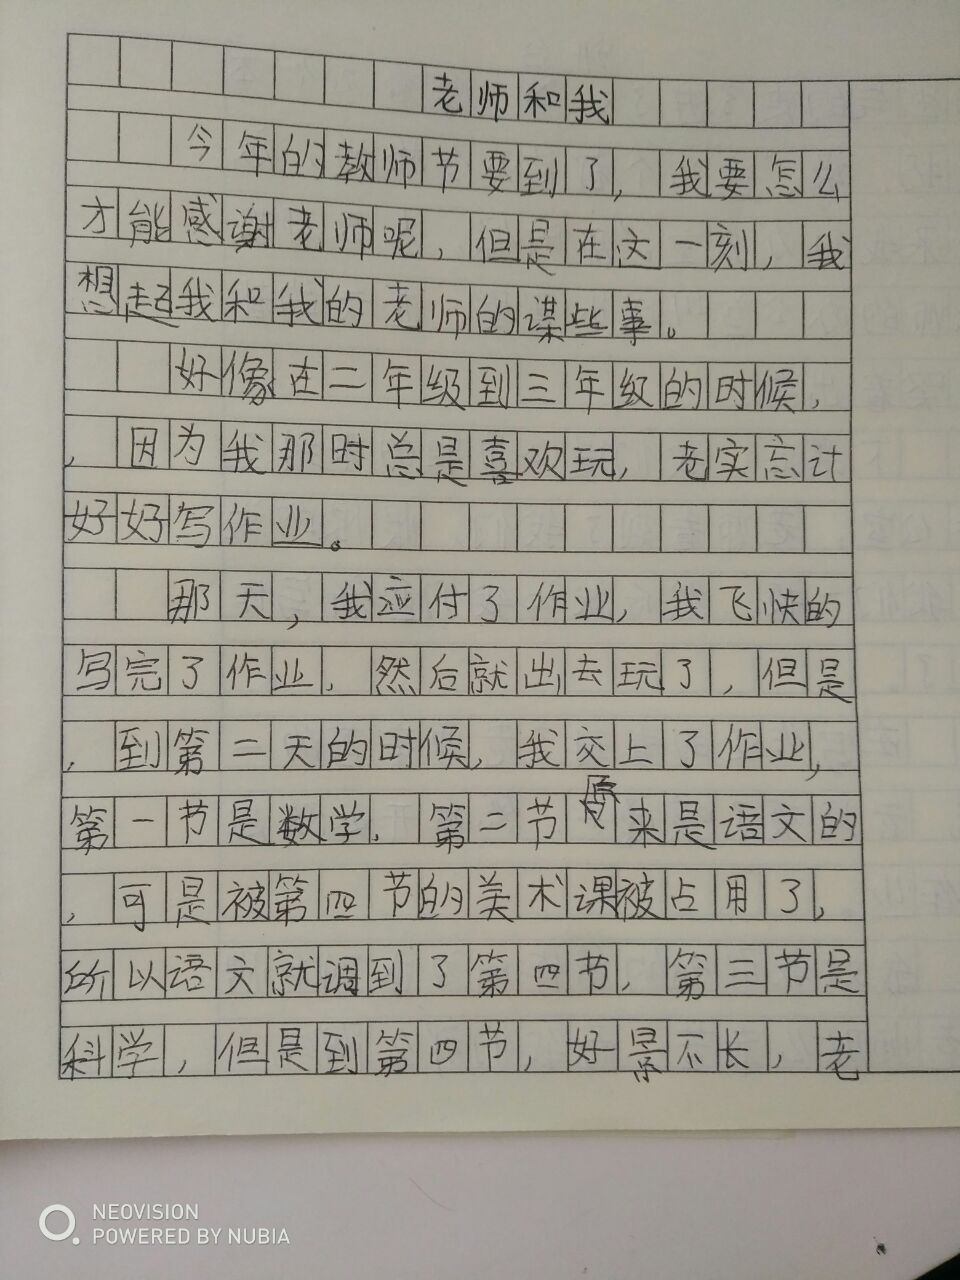 老师和我
今年的教师节要到了，我要怎么
才能感谢老师呢，但是在这一刻，我
想起我和我的老师的谋些事。
好像在二年级到三年级的时候，
，因为我那时总是喜欢玩，老实忘计
好好写作业。
那天，我应付了作业，我飞快的
写完了作业，然后就出去玩了，但是
，到第二天的时候，我交上了作业，
第一节是数学，第二节原来是语文的
，可是被第四节的美术课被占用了，
所以语文就调到了第四节，第三节是
科学，但是到第四节，好景不长，老
NEOVISION
POWERED BY NUBIA